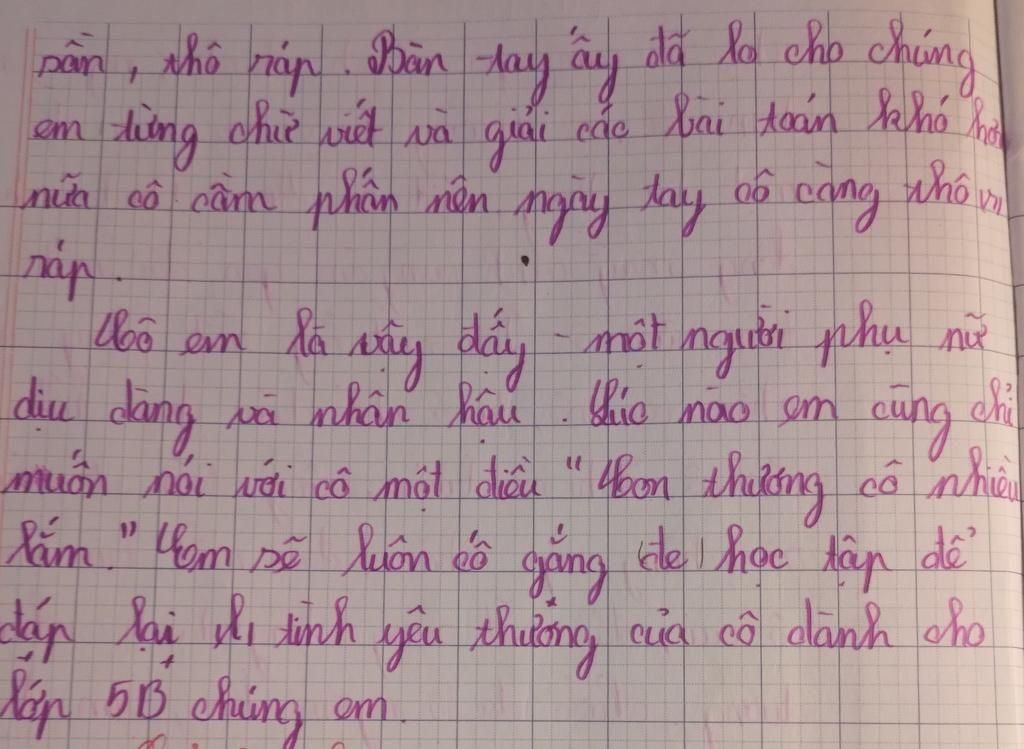 sần, thô ráp. Bàn tay ấy đã lo cho chúng
em từng chữ viết và giải các bài toán khó hơn
nữa cô cầm phấn nên ngày tay cô càng thô
ráp.
Cô em là vậy đấy - một người phụ nữ
dịu dàng và nhân hậu. Lúc nào em cũng chỉ
muốn nói với cô một điều "Con thương cô nhiều
lắm." Em sẽ luôn cố gắng (để) học tập để
đáp lại tình yêu thương của cô dành cho
lớp 5B chúng em.